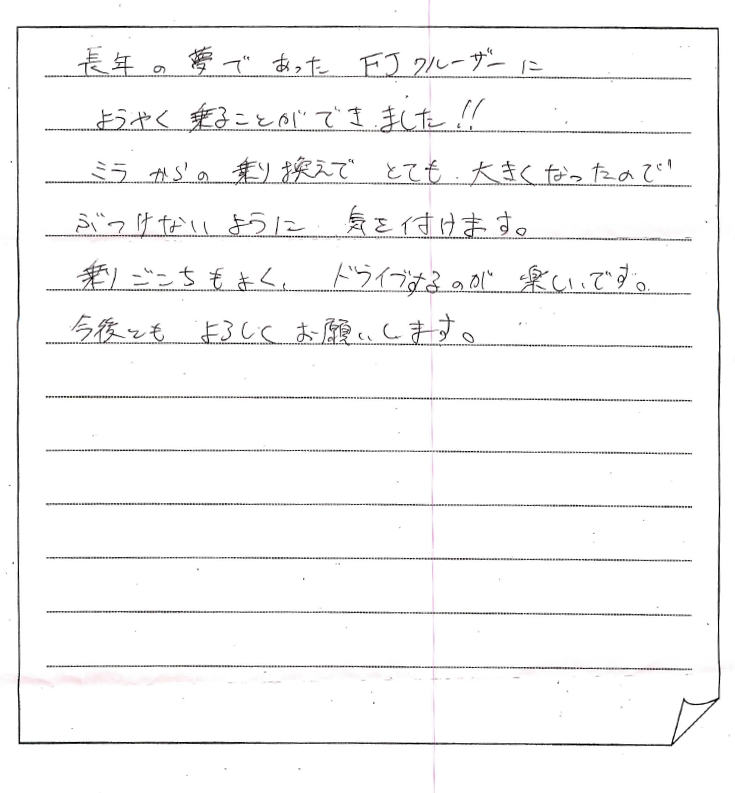 長年の夢であった FJクルーザーに
ようやく乗ることができました!!
ミラからの乗り換えで とても 大きくなったので
ぶつけないように 気を付けます。
乗りごこちもよく、 ドライブするのが 楽しいです。
今後とも よろしくお願いします。